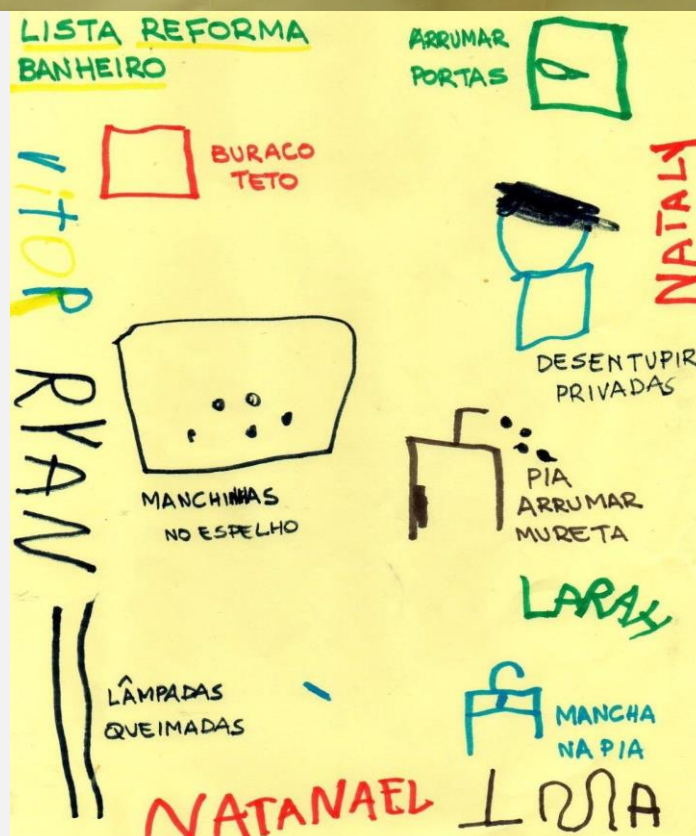 LISTA REFORMA
BANHEIRO
ARRUMAR
PORTAS
BURACO
TETO
NATALY
VITOR
DESENTUPIR
PRIVADAS
RYAN
MANCHINHAS
NO ESPELHO
PIA
ARRUMAR
MURETA
LARAH
LÂMPADAS
QUEIMADAS
MANCHA
NA PIA
NATANAEL